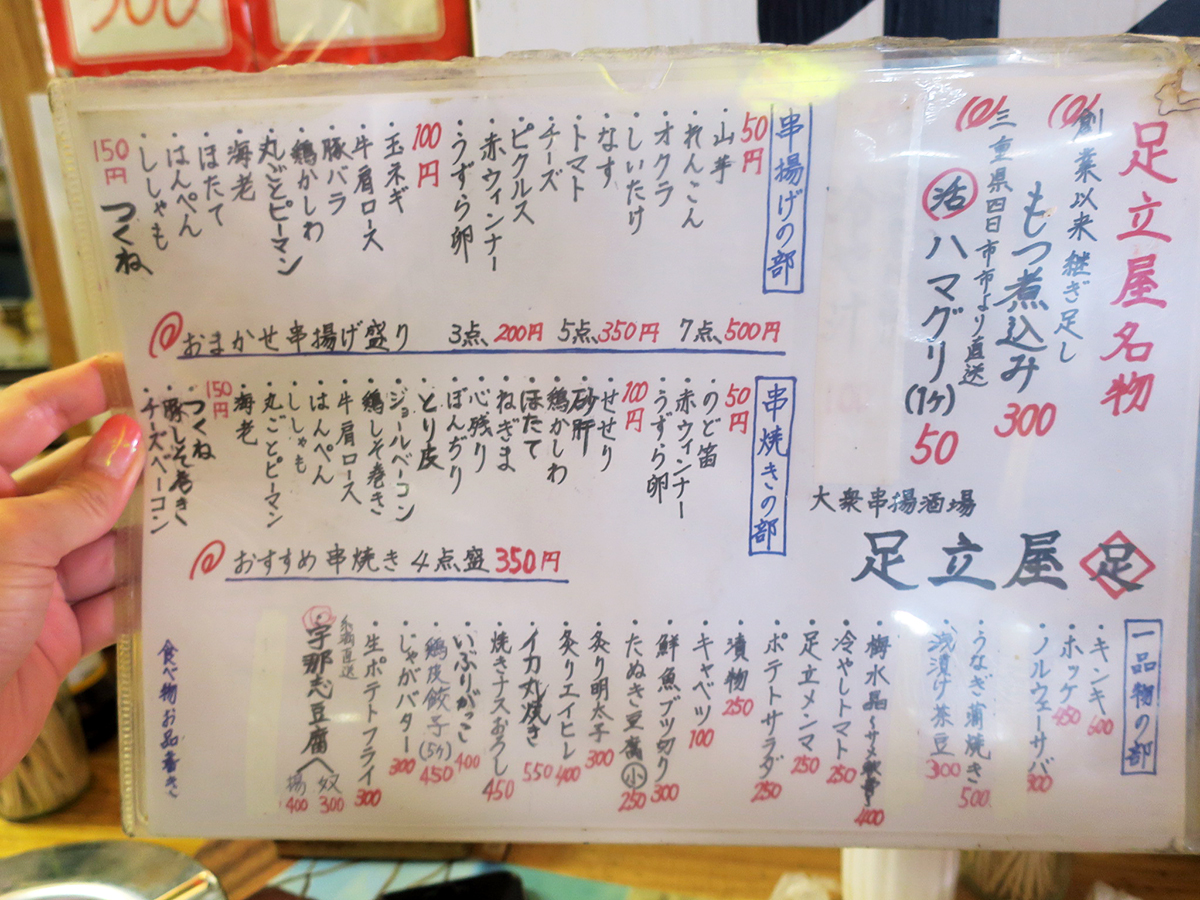 足立屋名物
創業以来継ぎ足し
もつ煮込み 300
三重県四日市市より直送
活 ハマグリ(1ヶ) 50
大衆串揚酒場
足立屋 足
串揚げの部
50円
・山芋
・れんこん
・オクラ
・しいたけ
・なす
・トマト
・チーズ
・ピクルス
・赤ウィンナー
・うずら卵
100円
・玉ネギ
・牛肩ロース
・豚バラ
・鶏かしわ
・丸ごとピーマン
・海老
・ほたて
・はんぺん
・ししゃも
150円 つくね
おまかせ串揚げ盛り 3点、200円 5点、350円 7点、500円
串焼きの部
50円
・のど笛
・赤ウィンナー
・うずら卵
100円
・せせり
・砂肝
・鶏かしわ
・ほたて
・ねぎま
・心残り
・ぼんぢり
・とり皮
・ジョールベーコン
・鶏しそ巻き
・牛肩ロース
・はんぺん
・ししゃも
・丸ごとピーマン
・海老
150円 つくね
・豚しそ巻き
・チーズベーコン
おすすめ串焼き 4点盛 350円
一品物の部
・キンキ 600
・ホッケ 450
・ノルウェーサバ 300
・うなぎ蒲焼き 500
・浅漬け茶豆 300
・梅水晶〜サメ軟骨 400
・冷やしトマト 250
・足立メンマ 250
・ポテトサラダ 250
・漬物 250
・キャベツ 100
・鮮魚ブツ切り 300
・たぬき豆腐 小 250
・炙り明太子 300
・炙りエイヒレ 400
・イカ丸焼き 550
・焼きナスおろし 450
・いぶりがっこ 400
・鶏皮餃子(5ヶ) 450
・じゃがバター 300
・生ポテトフライ 300
直送
宇那志豆腐へ 奴 300 揚 400
食べ物お品書き